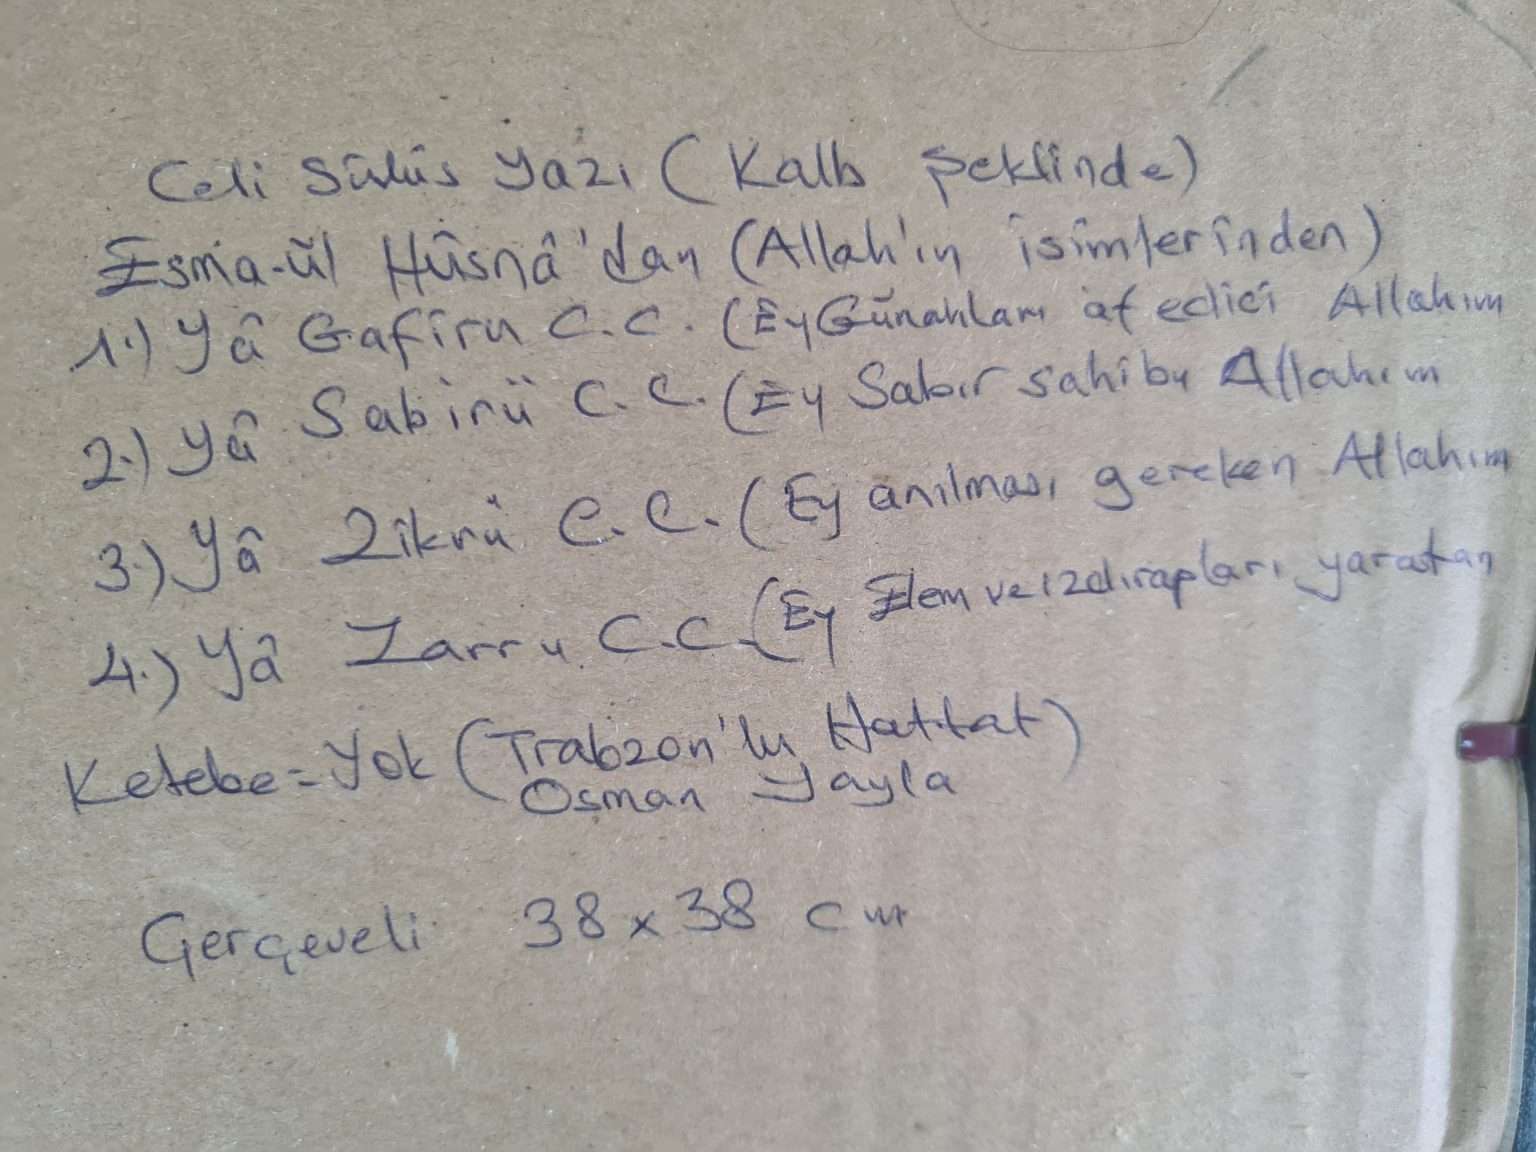 Celi Sülüs Yazı (Kalb Şeklinde)
Esma-ül Hüsnâ'dan (Allah'ın isimlerinden)
1.) Yâ Gafiru C.C. (Ey Günahları af edici Allahım
2.) Yâ Sabirü C.C. (Ey Sabır sahibu Allahım
3.) Yâ Zikrü C.C. (Ey anılması gereken Allahım
4.) Yâ Zarru C.C. (Ey Elem ve ızdırapları yaratan
Ketebe = Yok (Trabzon'lu Hattat)
Osman Yayla
Çerçeveli 38 x 38 cm